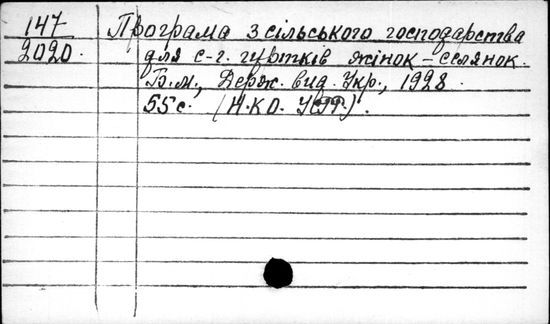 147 Програма з сільського господарства
2020. для с-г. гуртків жінок-селянок.
Б.м., Держ. вид. Укр., 1928
55 с. (Н.КО. УСРР.).